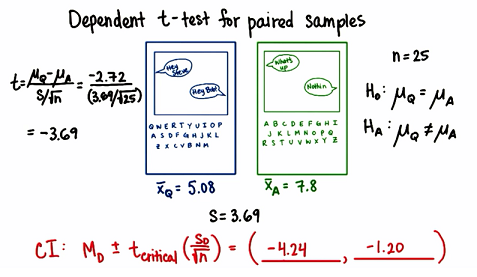 Dependent t-test for paired samples
t = μQ - μA / S/√n = -2.72 / (3.69/√25)
= -3.69
Hey Steve
Hey Bob!
QWERTYUIOP
ASDFGHJKL
ZXCVBNM
x̄Q = 5.08
What's up
Nothin
ABCDEFGHI
JKLMNOPQ
RSTUVWXYZ
x̄A = 7.8
n = 25
H₀: μQ = μA
HA: μQ ≠ μA
S = 3.69
CI: MD ± tcritical (SD/√n) = ( -4.24 , -1.20 )